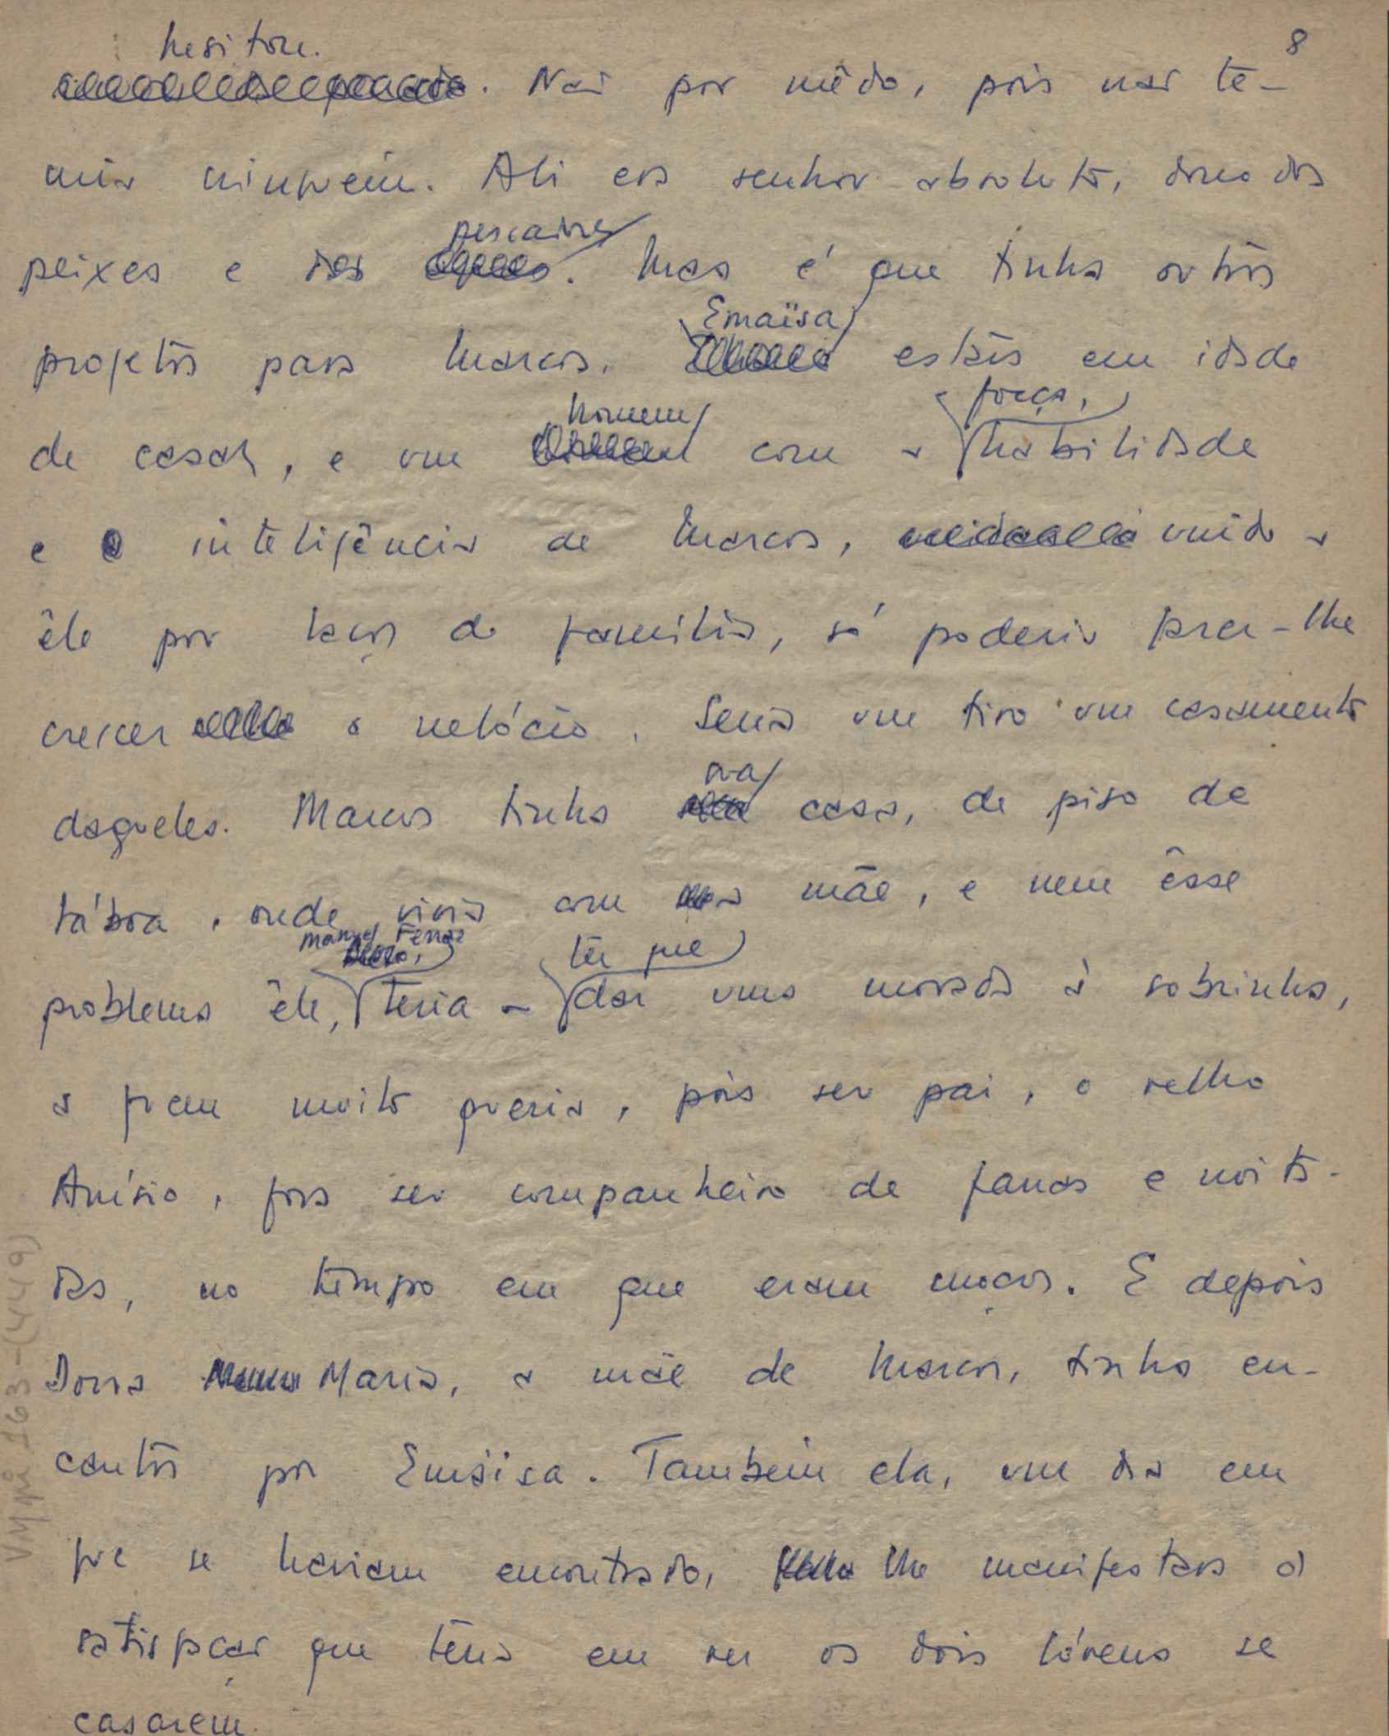 8
hesitou.
. Não por mêdo, pois não te-
mia ninguém. Ali era senhor absoluto, dono dos
pescadores
peixes e dos . Mas é que tinha outros
Emaïsa
projetos para Marcos. estava em idade
homem força,
de casar, e um com a habilidade
e a inteligência de Marcos, unido a
êle por laços de família, só poderia fazer-lhe
crescer o negócio. Seria um tiro um casamento
daqueles. Marcos tinha boa casa, de piso de
tábua, onde vivia com a mãe, e nem êsse
Manuel Ferraz ter que
problema êle, teria - dar uma morada à sobrinha,
a quem muito queria, pois seu pai, o velho
Anísio, fora seu companheiro de farras e noita-
das, no tempo em que eram moços. E depois
Dona Maria, a mãe de Marcos, tinha en-
cantos por Emaisa. Também ela, um dia em
que se haviam encontrado, lhe manifestara a
satisfação que teria em ver os dois jóvens se
casarem.
VMpi 163-(449)